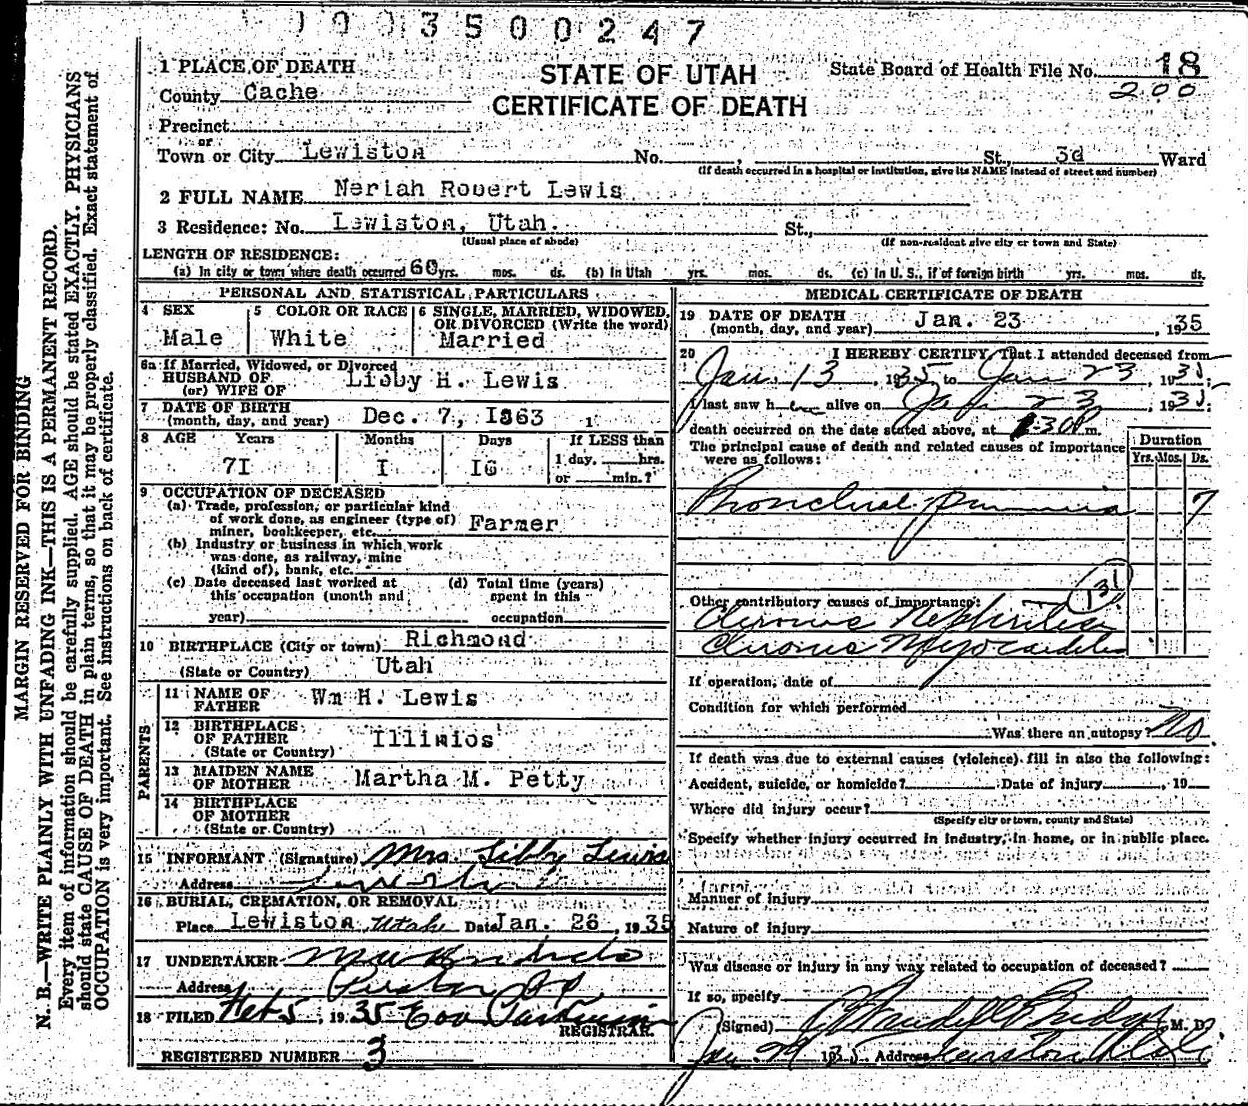 0 0 3 5 0 0 2 4 7
STATE OF UTAH
CERTIFICATE OF DEATH
State Board of Health File No. 18
200
1 PLACE OF DEATH
County Cache
Precinct
or
Town or City Lewiston No. , St., 3d Ward
(If death occurred in a hospital or institution, give its NAME instead of street and number)
2 FULL NAME Neriah Robert Lewis
3 Residence: No. Lewiston, Utah. St.,
(Usual place of abode) (If non-resident give city or town and State)
LENGTH OF RESIDENCE:
(a) In city or town where death occurred 60 yrs. mos. ds. (b) In Utah yrs. mos. ds. (c) in U. S., if of foreign birth yrs. mos. ds.
PERSONAL AND STATISTICAL PARTICULARS
4 SEX Male
5 COLOR OR RACE White
6 SINGLE, MARRIED, WIDOWED, OR DIVORCED (Write the word) Married
6a If Married, Widowed, or Divorced
HUSBAND OF
(or) WIFE OF Libby H. Lewis
7 DATE OF BIRTH
(month, day, and year) Dec. 7, 1863
8 AGE Years Months Days If LESS than
71 1 16 1 day, hrs.
or min.?
9 OCCUPATION OF DECEASED
(a) Trade, profession, or particular kind
of work done, as engineer (type of)
miner, bookkeeper, etc. Farmer
(b) Industry or business in which work
was done, as railway, mine
(kind of), bank, etc.
(c) Date deceased last worked at
this occupation (month and
year)
(d) Total time (years)
spent in this
occupation
10 BIRTHPLACE (City or town) Richmond
(State or Country) Utah
PARENTS
11 NAME OF
FATHER Wm H. Lewis
12 BIRTHPLACE
OF FATHER Illinios
(State or Country)
13 MAIDEN NAME
OF MOTHER Martha M. Petty
14 BIRTHPLACE
OF MOTHER
(State or Country)
15 INFORMANT (Signature) Mrs. Libby Lewis
Address Lewiston
16 BURIAL, CREMATION, OR REMOVAL
Place Lewiston Utah Date Jan. 26, 1935
17 UNDERTAKER
Address
18 FILED Feb 5, 1935
REGISTRAR.
REGISTERED NUMBER 3
MEDICAL CERTIFICATE OF DEATH
19 DATE OF DEATH
(month, day, and year) Jan. 23, 1935
20 I HEREBY CERTIFY, That I attended deceased from
Jan. 13, 1935 to Jan 23, 1935;
I last saw h alive on Jan 23, 1935;
death occurred on the date stated above, at m.
The principal cause of death and related causes of importance
were as follows:
Duration
Yrs. Mos. Ds.
Bronchial pneumonia 7
131
Other contributory causes of importance:
Chronic Nephritis
Chronic Myocarditis
If operation, date of
Condition for which performed
Was there an autopsy? No.
If death was due to external causes (violence) fill in also the following:
Accident, suicide, or homicide? Date of injury , 19
Where did injury occur?
(Specify city or town, county and State)
Specify whether injury occurred in industry, in home, or in public place.
Manner of injury
Nature of injury
Was disease or injury in any way related to occupation of deceased?
If so, specify
(Signed) M. D.
Jan. 29 1935 Address Lewiston Utah
MARGIN RESERVED FOR BINDING
N. B.—WRITE PLAINLY WITH UNFADING INK—THIS IS A PERMANENT RECORD.
Every item of information should be carefully supplied. AGE should be stated EXACTLY. PHYSICIANS
should state CAUSE OF DEATH in plain terms, so that it may be properly classified. Exact statement of
OCCUPATION is very important. See instructions on back of certificate.